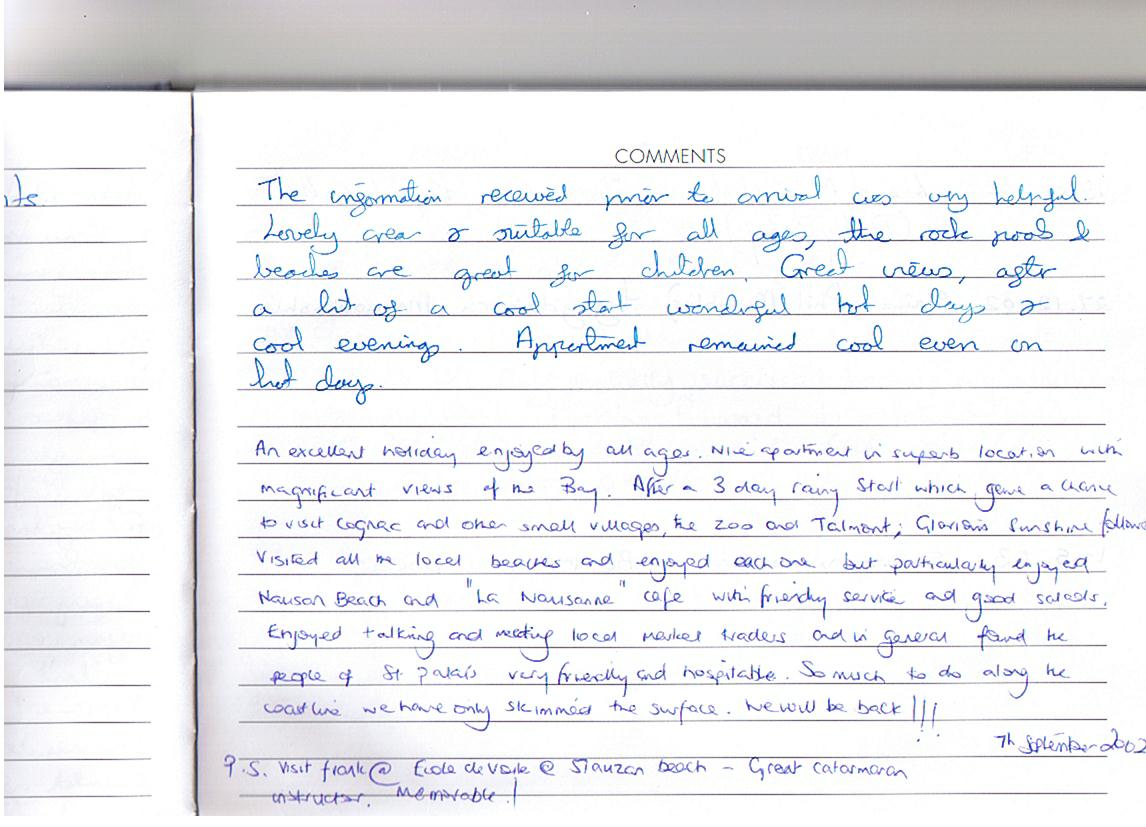 COMMENTS
nts
The information received prior to arrival was very helpful.
Lovely area & suitable for all ages, the rock pools &
beaches are great for children. Great views, after
a bit of a cool start wonderful hot days &
cool evenings. Appartment remained cool even on
hot days.
An excellent holiday enjoyed by all ages. Nice apartment in superb location with
magnificant views of the Bay. After a 3 day rainy start which gave a chance
to visit Cognac and other small villages, the zoo and Talmont; Glorious Sunshine followed
Visited all the local beaches and enjoyed each one but particularly enjoyed
Nauson Beach and "La Nausanne" cafe with friendly service and good salads.
Enjoyed talking and meeting local market traders and in general found the
people of St. Palais very friendly and hospitable. So much to do along the
coastline we have only skimmed the surface. We will be back!!!
7th September 2002
P.S. Visit frank @ Ecole de Voile @ beach - Great catarmaran
instructor. Memorable!